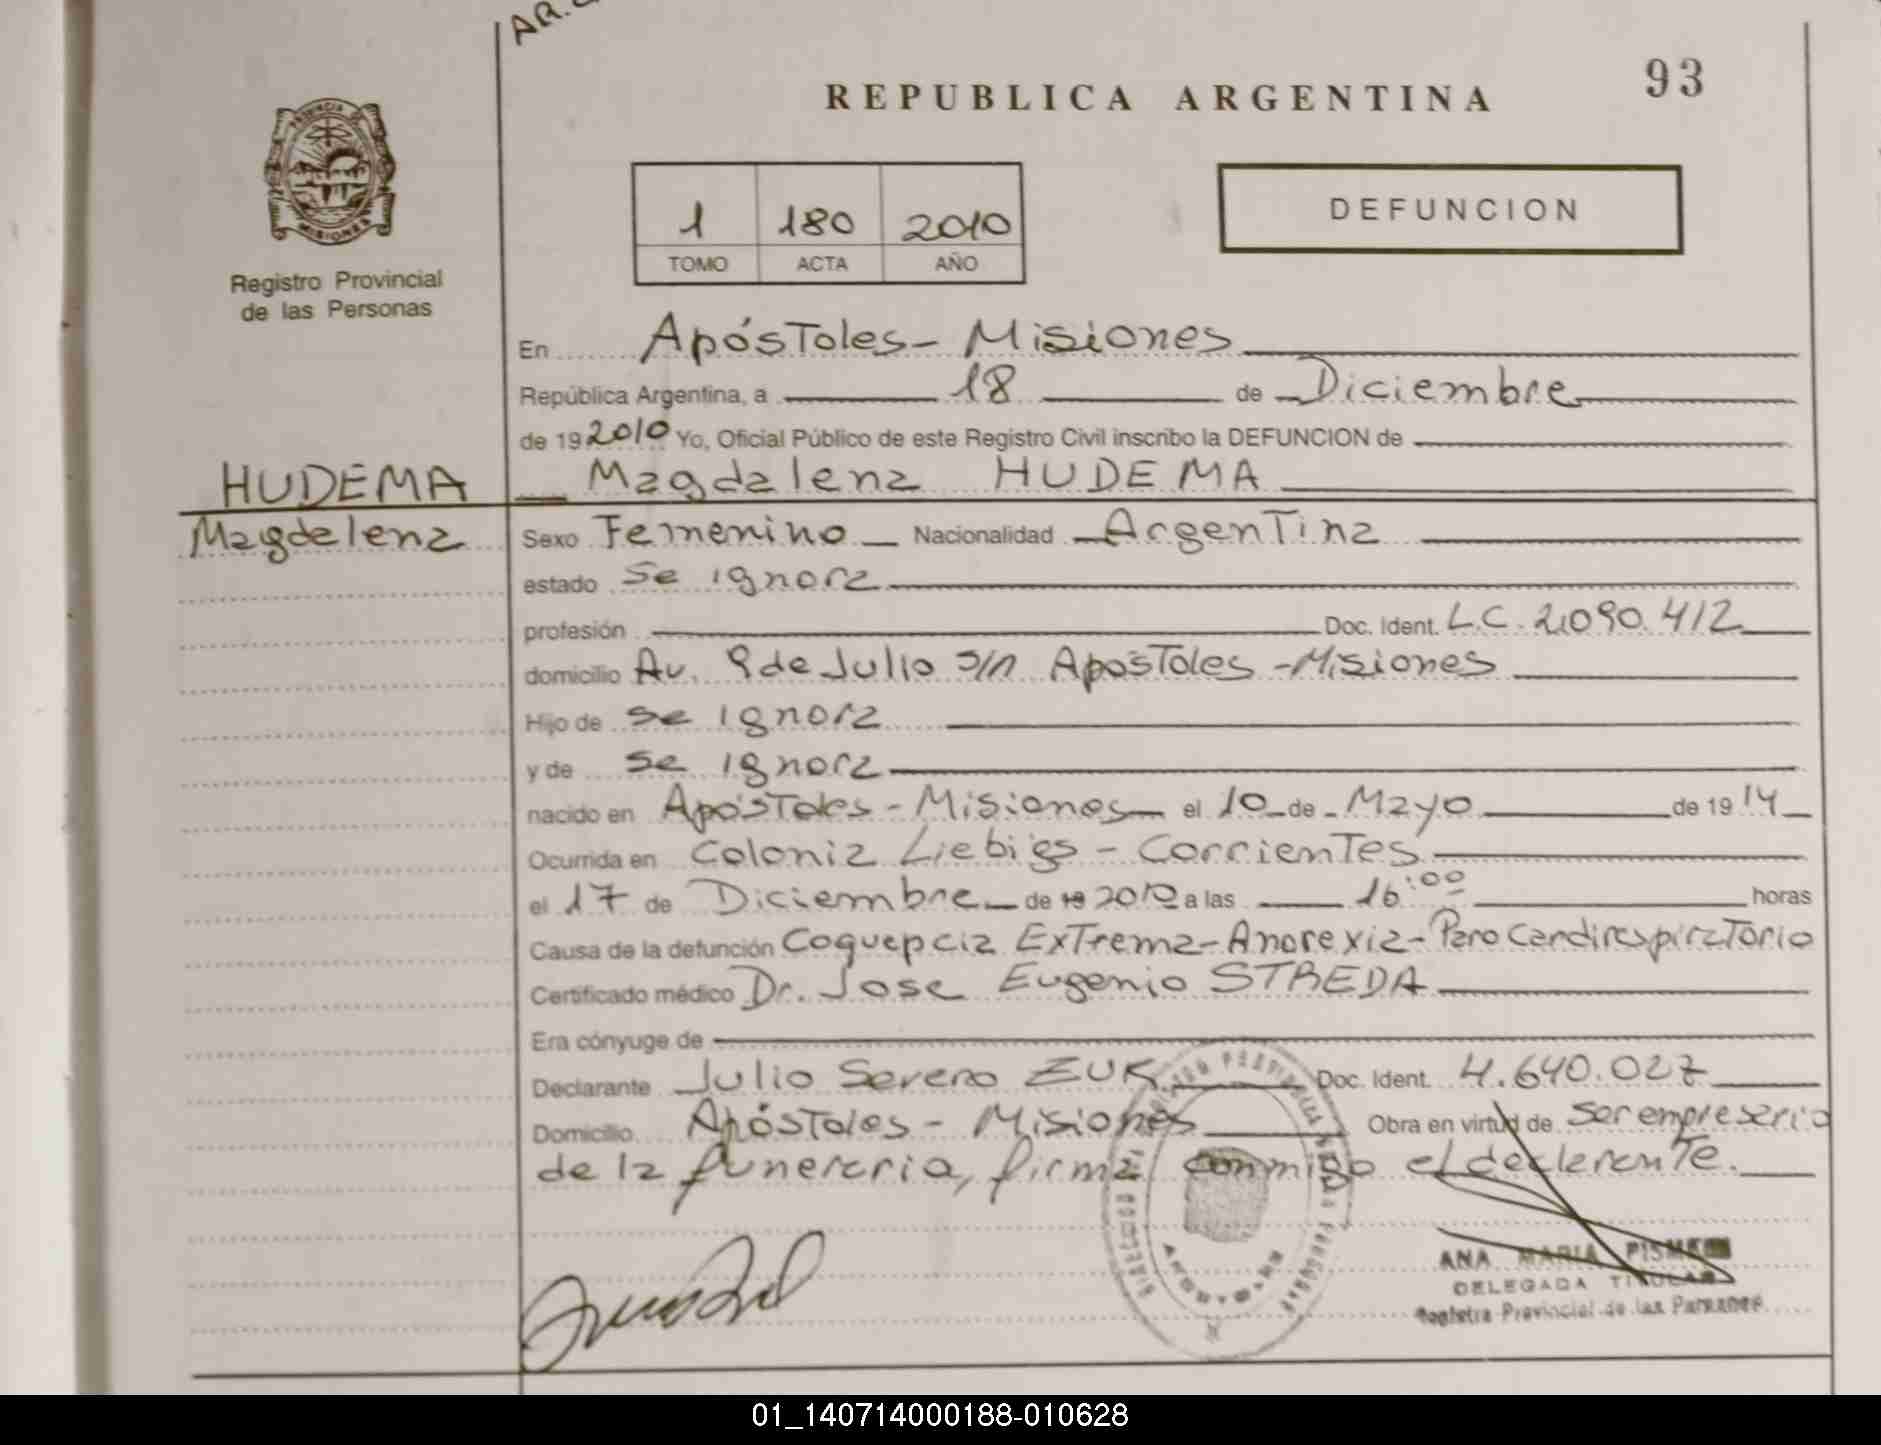 93
REPUBLICA ARGENTINA
PROVINCIA DE
MISIONES
Registro Provincial
de las Personas
1 180 2010
TOMO ACTA AÑO
DEFUNCION
En Apóstoles - Misiones
República Argentina, a 18 de Diciembre
de 19 2010 Yo, Oficial Público de este Registro Civil inscribo la DEFUNCION de
HUDEMA
Magdalena
Magdalena HUDEMA
Sexo Femenino Nacionalidad Argentina
estado Se ignora
profesión Doc. Ident. L.C. 2.090.412
domicilio Av. 9 de Julio s/n Apóstoles - Misiones
Hijo de se ignora
y de se ignora
nacido en Apóstoles - Misiones el 10 de Mayo de 19 14
Ocurrida en Colonia Liebigs - Corrientes
el 17 de Diciembre de 19 2010 a las 16:00 horas
Causa de la defunción Coquepcia Extrema - Anorexia - Paro Cardirespiratorio
Certificado médico Dr. Jose Eugenio STREDA
Era cónyuge de
Declarante Julio Severo ZUK Doc. Ident. 4.640.027
Domicilio Apóstoles - Misiones Obra en virtud de ser empresario
de la funeraria, firma conmigo el declarante.
ANA MARIA
DELEGADA TITULAR
Registro Provincial de las Personas
01_140714000188-010628